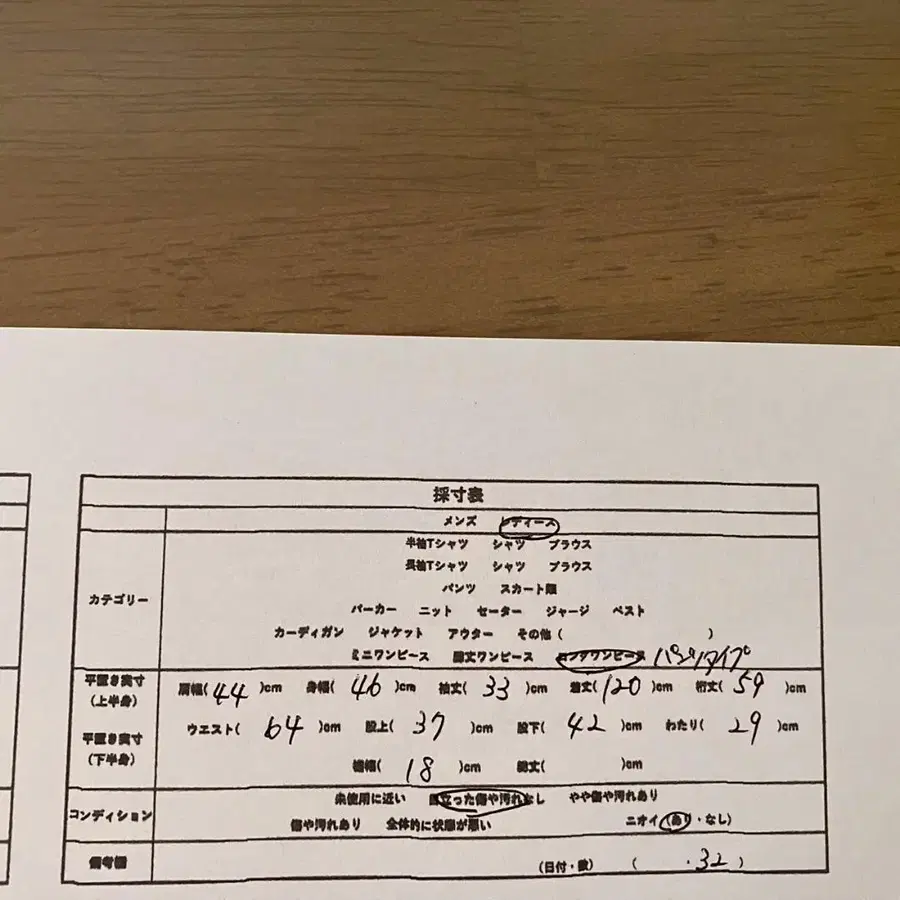 採寸表
メンズ レディース
カテゴリー
半袖Tシャツ シャツ ブラウス
長袖Tシャツ シャツ ブラウス
パンツ スカート類
パーカー ニット セーター ジャージ ベスト
カーディガン ジャケット アウター その他( )
ミニワンピース 膝丈ワンピース ロングワンピース パンツタイプ
平置き実寸
(上半身)
肩幅(44)cm 身幅(46)cm 袖丈(33)cm 着丈(120)cm 裄丈(59)cm
平置き実寸
(下半身)
ウエスト(64)cm 股上(37)cm 股下(42)cm わたり(29)cm
裾幅(18)cm 総丈( )cm
コンディション
未使用に近い 目立った傷や汚れなし やや傷や汚れあり
傷や汚れあり 全体的に状態が悪い ニオイ(あり・なし)
備考欄
(日付・数) ( ・32 )